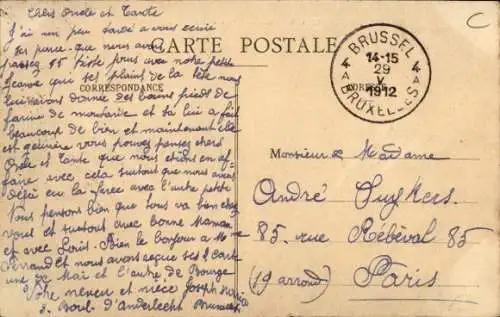 Chers Oncle et Tante
J'ai un peu tardé a vous écrire
ses parce que nous avons
passez 15 triste jours avec notre petite
Jeanne qui ses plaint de la tête nous
lui avons donné des bains pieds de
farine de moutarde et sa lui a fait
beaucoup de bien et maintenant elle
est guérire vous pouvez pensez chers
Oncle et Tante que nous étions en af
faire avec cela surtout que nous avons
déjà eu la avec l'autre petite
Nous pensons bien que tous va bien chez
vous et surtout avec bonne Maman
et avec Loris. Bien le bonjour a Mme
Fernand et nous avons reçue ses 2 carte
une de Mai et l'autre de Bouge
Votre neveu et nièce Joseph Maria
3. Boul. d'Anderlecht Bruxelles
CARTE POSTALE
CORRESPONDANCE
BRUSSEL
4 14-15 4
29
V
1912
BRUXELLES
Monsieur & Madame
André
85. rue Rébeval 85
(19 arrond) Paris
C